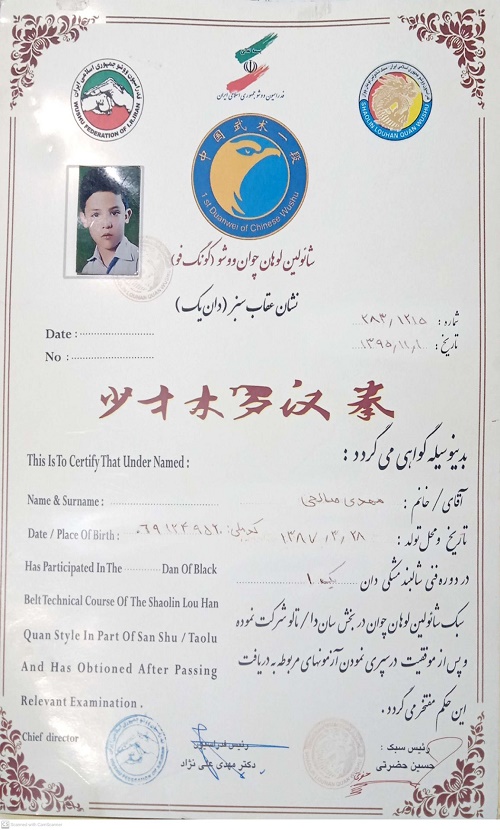 فدراسیون ووشو جمهوری اسلامی ایران
WUSHU FEDERATION OF I.R.IRAN
فدراسیون ووشو جمهوری اسلامی ایران
SHAOLIN LOUHAN QUAN WUSHU
中国武术一段
1 st Duanwei of Chinese Wushu
شائولین لوهان چوان ووشو (کونگ فو)
نشان عقاب سبز (دان یک)
شماره : ۲۸۳/۱۲۱۵
تاریخ : ۱۳۹۵/۱۱/۱
Date :
No :
少林罗汉拳
بدینوسیله گواهی می گردد :
This Is To Certify That Under Named :
آقای / خانم : مهدی صالحی
Name & Surname :
تاریخ ومحل تولد : ۱۳۸۷/۳/۲۸ کدملی: ۰۶۹۱۲۴۹۵۲۰
Date / Place Of Birth :
در دوره فنی شالبند مشکی دان یک ۱
Has Participated In The Dan Of Black
سبک شائولین لوهان چوان در بخش سان دا / تالو شرکت نموده
Belt Technical Course Of The Shaolin Lou Han
Quan Style In Part Of San Shu / Taolu
و پس از موفقیت در سپری نمودن آزمونهای مربوطه به دریافت
And Has Obtioned After Passing
این حکم مفتخر می گردد .
Relevant Examination .
رئیس سبک :
حسین حضرتی
رئیس فدراسیون
دکتر مهدی علی نژاد
Chief director
Scanned with CamScanner